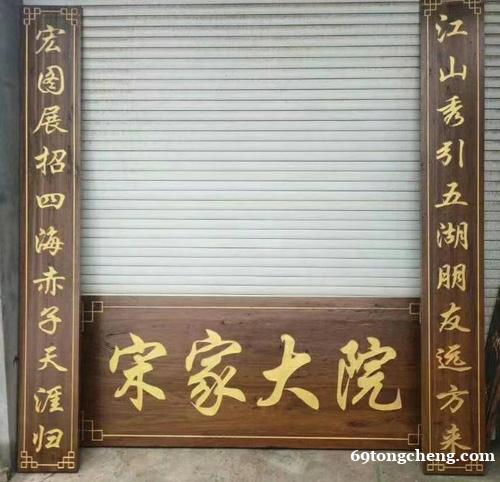 江山秀引五湖朋友远方来
宏图展招四海赤子天涯归
宋家大院
69tongcheng.com